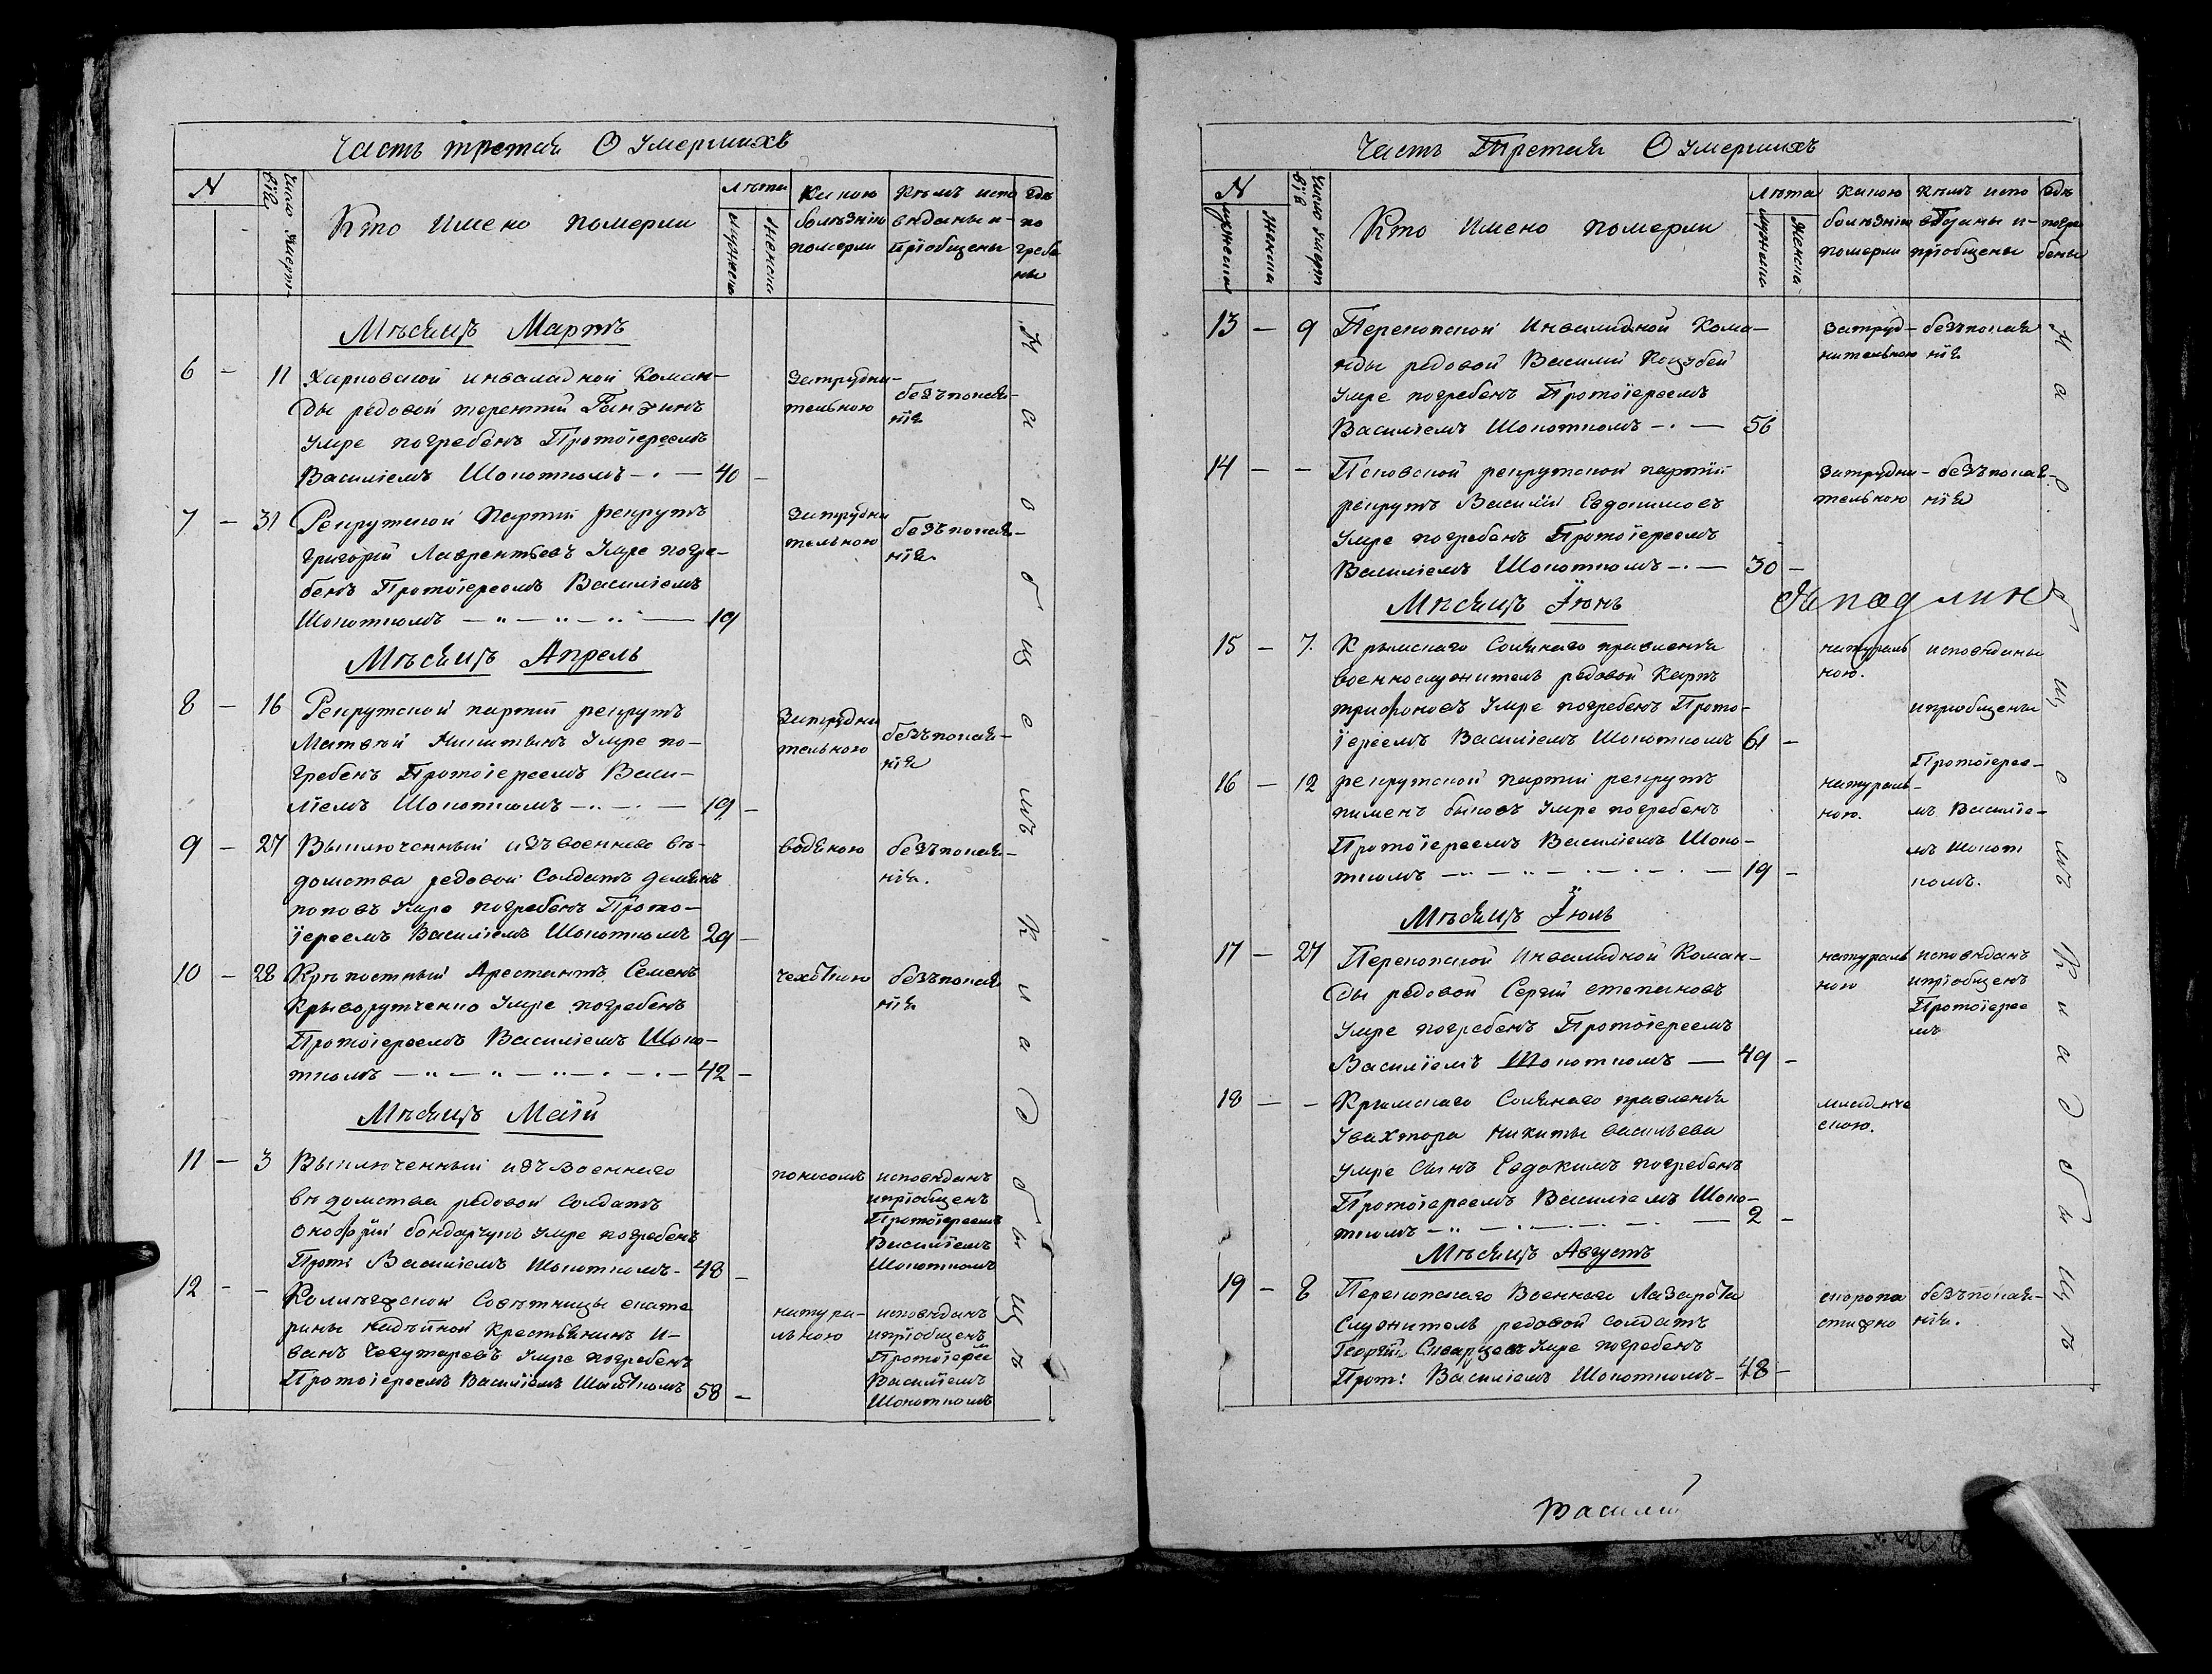 Часть третая О Умершихъ
N
Число умерт-
віе
Кто Имено померли
Лѣта
Мужеска
Женска
Какою
болѣзнію
померли
Кѣмъ испо
вѣданы и-
Пріобщены
Гдѣ
по
гребе
ны
Мѣсяцъ Мартъ
6 - 11 Харковской инвалидной Коман-
ды редовой терентий
Умре погребенъ Протоіереемъ
Василіемъ Шокоткомъ - . - 40 -
Затрудни-
тельною
безъпокая-
нія
7 - 31 Рекрутской Партіи рекрутъ
григорій Лаврентьевъ Умре погре-
бенъ Протоіереемъ Василіемъ
Шокоткомъ - " - " - " - 19
Затрудни
тельною
безъпокая-
нія
Мѣсяцъ Апрель
8 - 16 Рекрутской партіи рекрутъ
Матвѣй Умре по-
гребенъ Протоіереемъ Васи-
ліемъ Шокоткомъ - .. - . - 19 -
Затрудни
тельною
безъпокая-
нія
9 - 27 Выключенный изъ военнаго вѣ-
домства редовой Солдатъ демянъ
поповъ Умре погребенъ Прото-
іереемъ Василіемъ Шокоткомъ 29 -
водяною
безъпокая-
нія.
10 - 28 Крѣпостный Арестантъ Семенъ
Крыворутченко Умре погребенъ
Протоіереемъ Василіемъ Шоко-
ткомъ - " - " - " - . - . - 42 -
чехоткою
безъпокая
нія
Мѣсяцъ Маій
11 - 3 Выключенный изъ Военнаго
вѣдомства редовой Солдатъ
онофрій бондарчукъ Умре погребенъ
Прот: Василіемъ Шокоткомъ - 48 -
поносомъ
исповѣданъ
ипріобщенъ
Протоіереемъ
Василіемъ
Шокоткомъ
12 - - Колѣжской Совѣтницы екате
рины Крестьянинъ И-
ванъ Умре погребенъ
Протоіереемъ Василіемъ Шокоткомъ 58 -
натура-
льною
исповѣданъ
ипріобщенъ
Протоіерее
Василіемъ
Шокоткомъ
На общемъ Кладбыщъ
Часть Третая О умершихъ
N
Мужеска
Женска
Число умерт
віе
Кто Имено померли
Лѣта
Мужеска
Женска
Какою
болѣзнію
померли
Кѣмъ испо
вѣданы и-
пріобщены
Гдѣ
погре
бены
13 - 9 Перекопской Инвалидной Кома-
нды редовой Василій Коцюбей
Умре погребенъ Протоіереемъ
Василіемъ Шокоткомъ - . - 56
Затруд-
нительною
безъпокая
нія
14 - - Псковской рекрутской партіи
рекрутъ Василій Евдокимовъ
Умре погребенъ Протоіереемъ
Василіемъ Шокоткомъ - . - 30 -
Затрудни-
тельною
безъпокая-
нія
Мѣсяцъ Іюнь
15 - 7. Крымскаго Солянаго правленія
военнослужитель редовой Карпъ
трифоновъ Умре погребенъ Прото-
іереемъ Василіемъ Шокоткомъ 61 -
натураль
ною.
исповѣданы
ипріобщены
Протоіерее-
мъ Василіе-
мъ Шокот
комъ.
16 - 12 рекрутской партіи рекрутъ
пименъ быковъ Умре погребенъ
Протоіереемъ Василіемъ Шоко-
ткомъ - " - " - . - . - . - 19 -
натураль-
ною.
Мѣсяцъ Іюль
17 - 27 Перекопской Инвалидной Коман-
ды редовой Сергій степановъ
Умре погребенъ Протоіереемъ
Василіемъ Шокоткомъ - 49 -
натураль
ною
исповѣданъ
ипріобщенъ
Протоіерее
мъ
18 - - Крымскаго Солянаго правленія
Увахтора Никиты васильева
умре Сынъ Евдокимъ погребенъ
Протоіереемъ Василіемъ Шоко-
ткомъ - " - . - . - . - 2 -
младенче
скою.
Мѣсяцъ Августъ
19 - 8 Перекопскаго Военнаго Лазарета
Служитель редовой солдатъ
Георгій Умре погребенъ
Прот: Василіемъ Шокоткомъ - 48 -
скоропо
стижно
безъпокая-
нія.
На общемъ Кладбыщъ
Василий